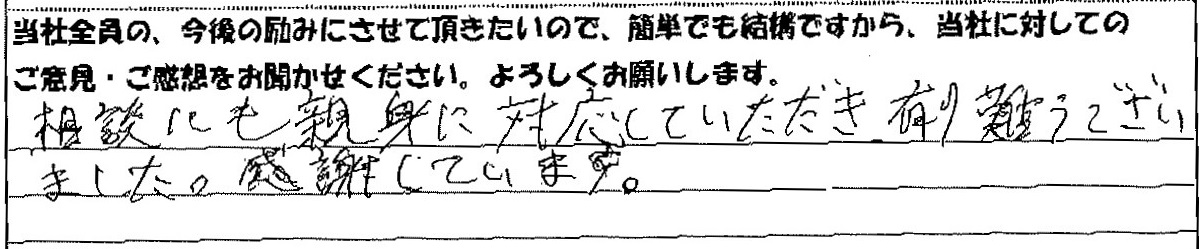 当社全員の、今後の励みにさせて頂きたいので、簡単でも結構ですから、当社に対しての
ご意見・ご感想をお聞かせください。よろしくお願いします。
相談にも親身に対応していただき有り難うござい
ました。感謝しています。